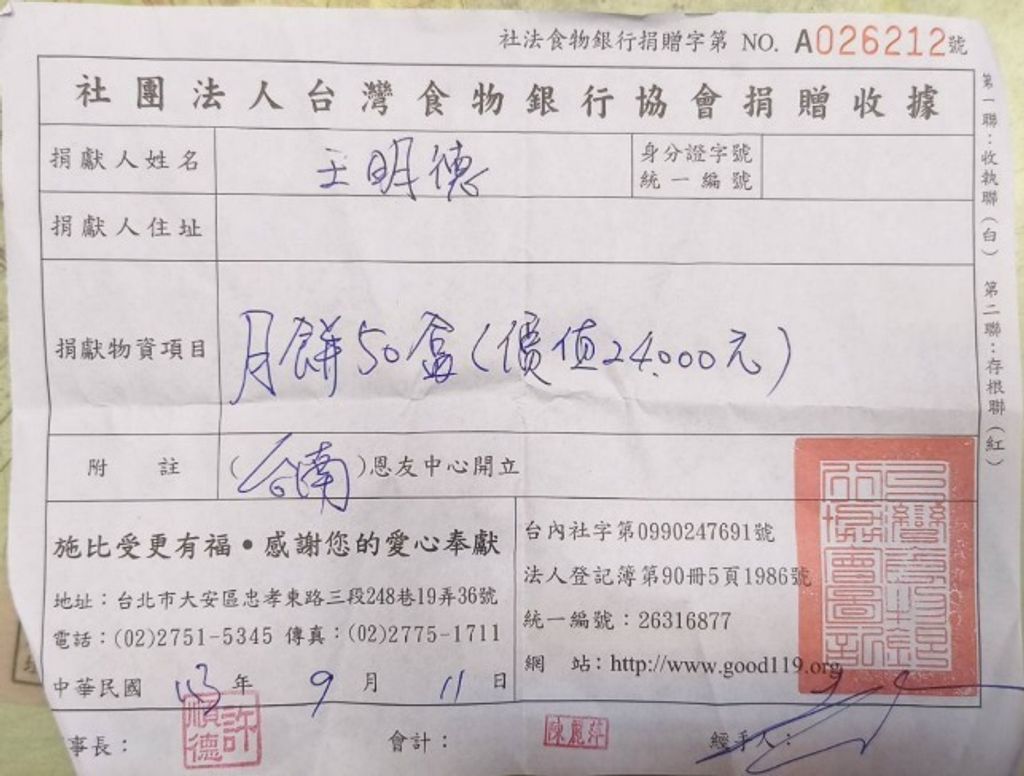 社法食物銀行捐贈字第 NO. A026212號
社團法人台灣食物銀行協會捐贈收據
捐獻人姓名 王明德 身分證字號
統一編號
捐獻人住址
捐獻物資項目 月餅50盒(價值24,000元)
附 註 (台南)恩友中心開立
施比受更有福•感謝您的愛心奉獻
地址:台北市大安區忠孝東路三段248巷19弄36號
電話:(02)2751-5345 傳真:(02)2775-1711
中華民國 113 年 9 月 11 日
台內社字第0990247691號
法人登記簿第90冊5頁1986號
統一編號:26316877
網 站:http://www.good119.org
事長: 許順德 會計: 陳麗萍 經手人:
第一聯:收執聯(白) 第二聯:存根聯(紅)